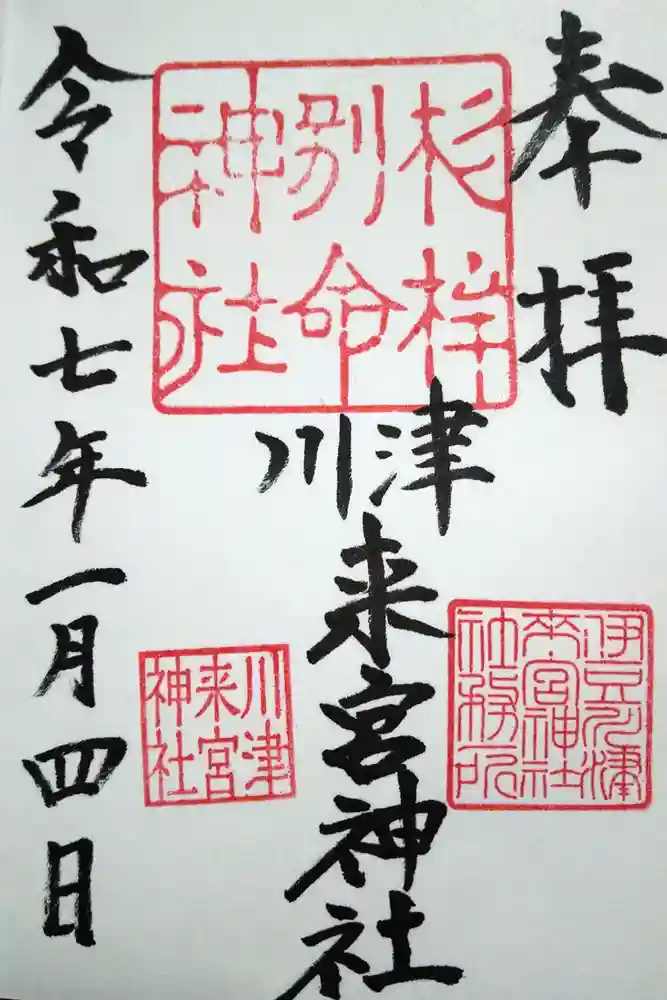 奉拝
杉桙
別命
神社
川津
来宮神社
伊豆川津
来宮神社
社務所
川津
来宮
神社
令和七年一月四日